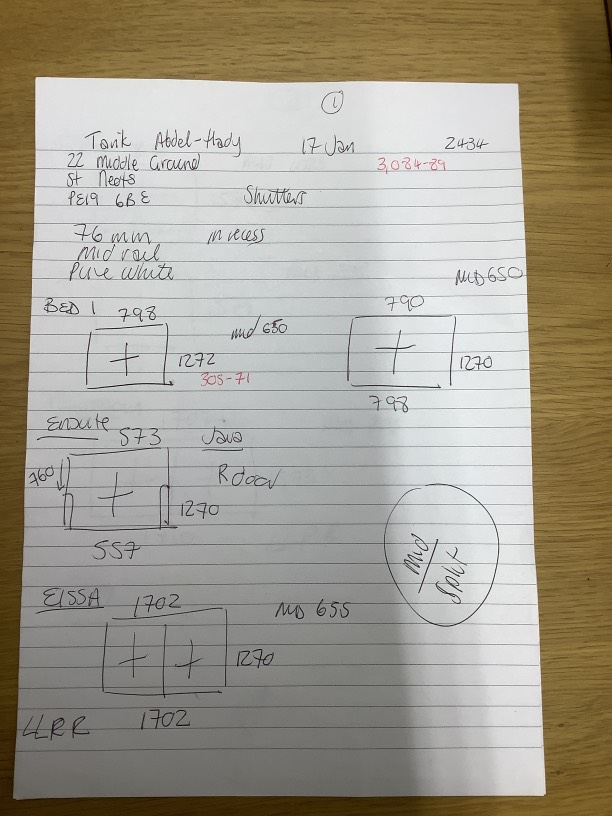 1
Tarik Abdel-Hady 17 Jan 2434
22 Middle Ground 3,084-89
St Neots
PE19 6BE Shutters
76 mm in recess
Mid rail
Pure white
MID 650
BED 1 798 790
mid 650
1272 1270
305-71
798
Ensuite 573 Java
760 R door
1270
557
Mid
Split
EISSA 1702 MID 655
1270
LLRR 1702